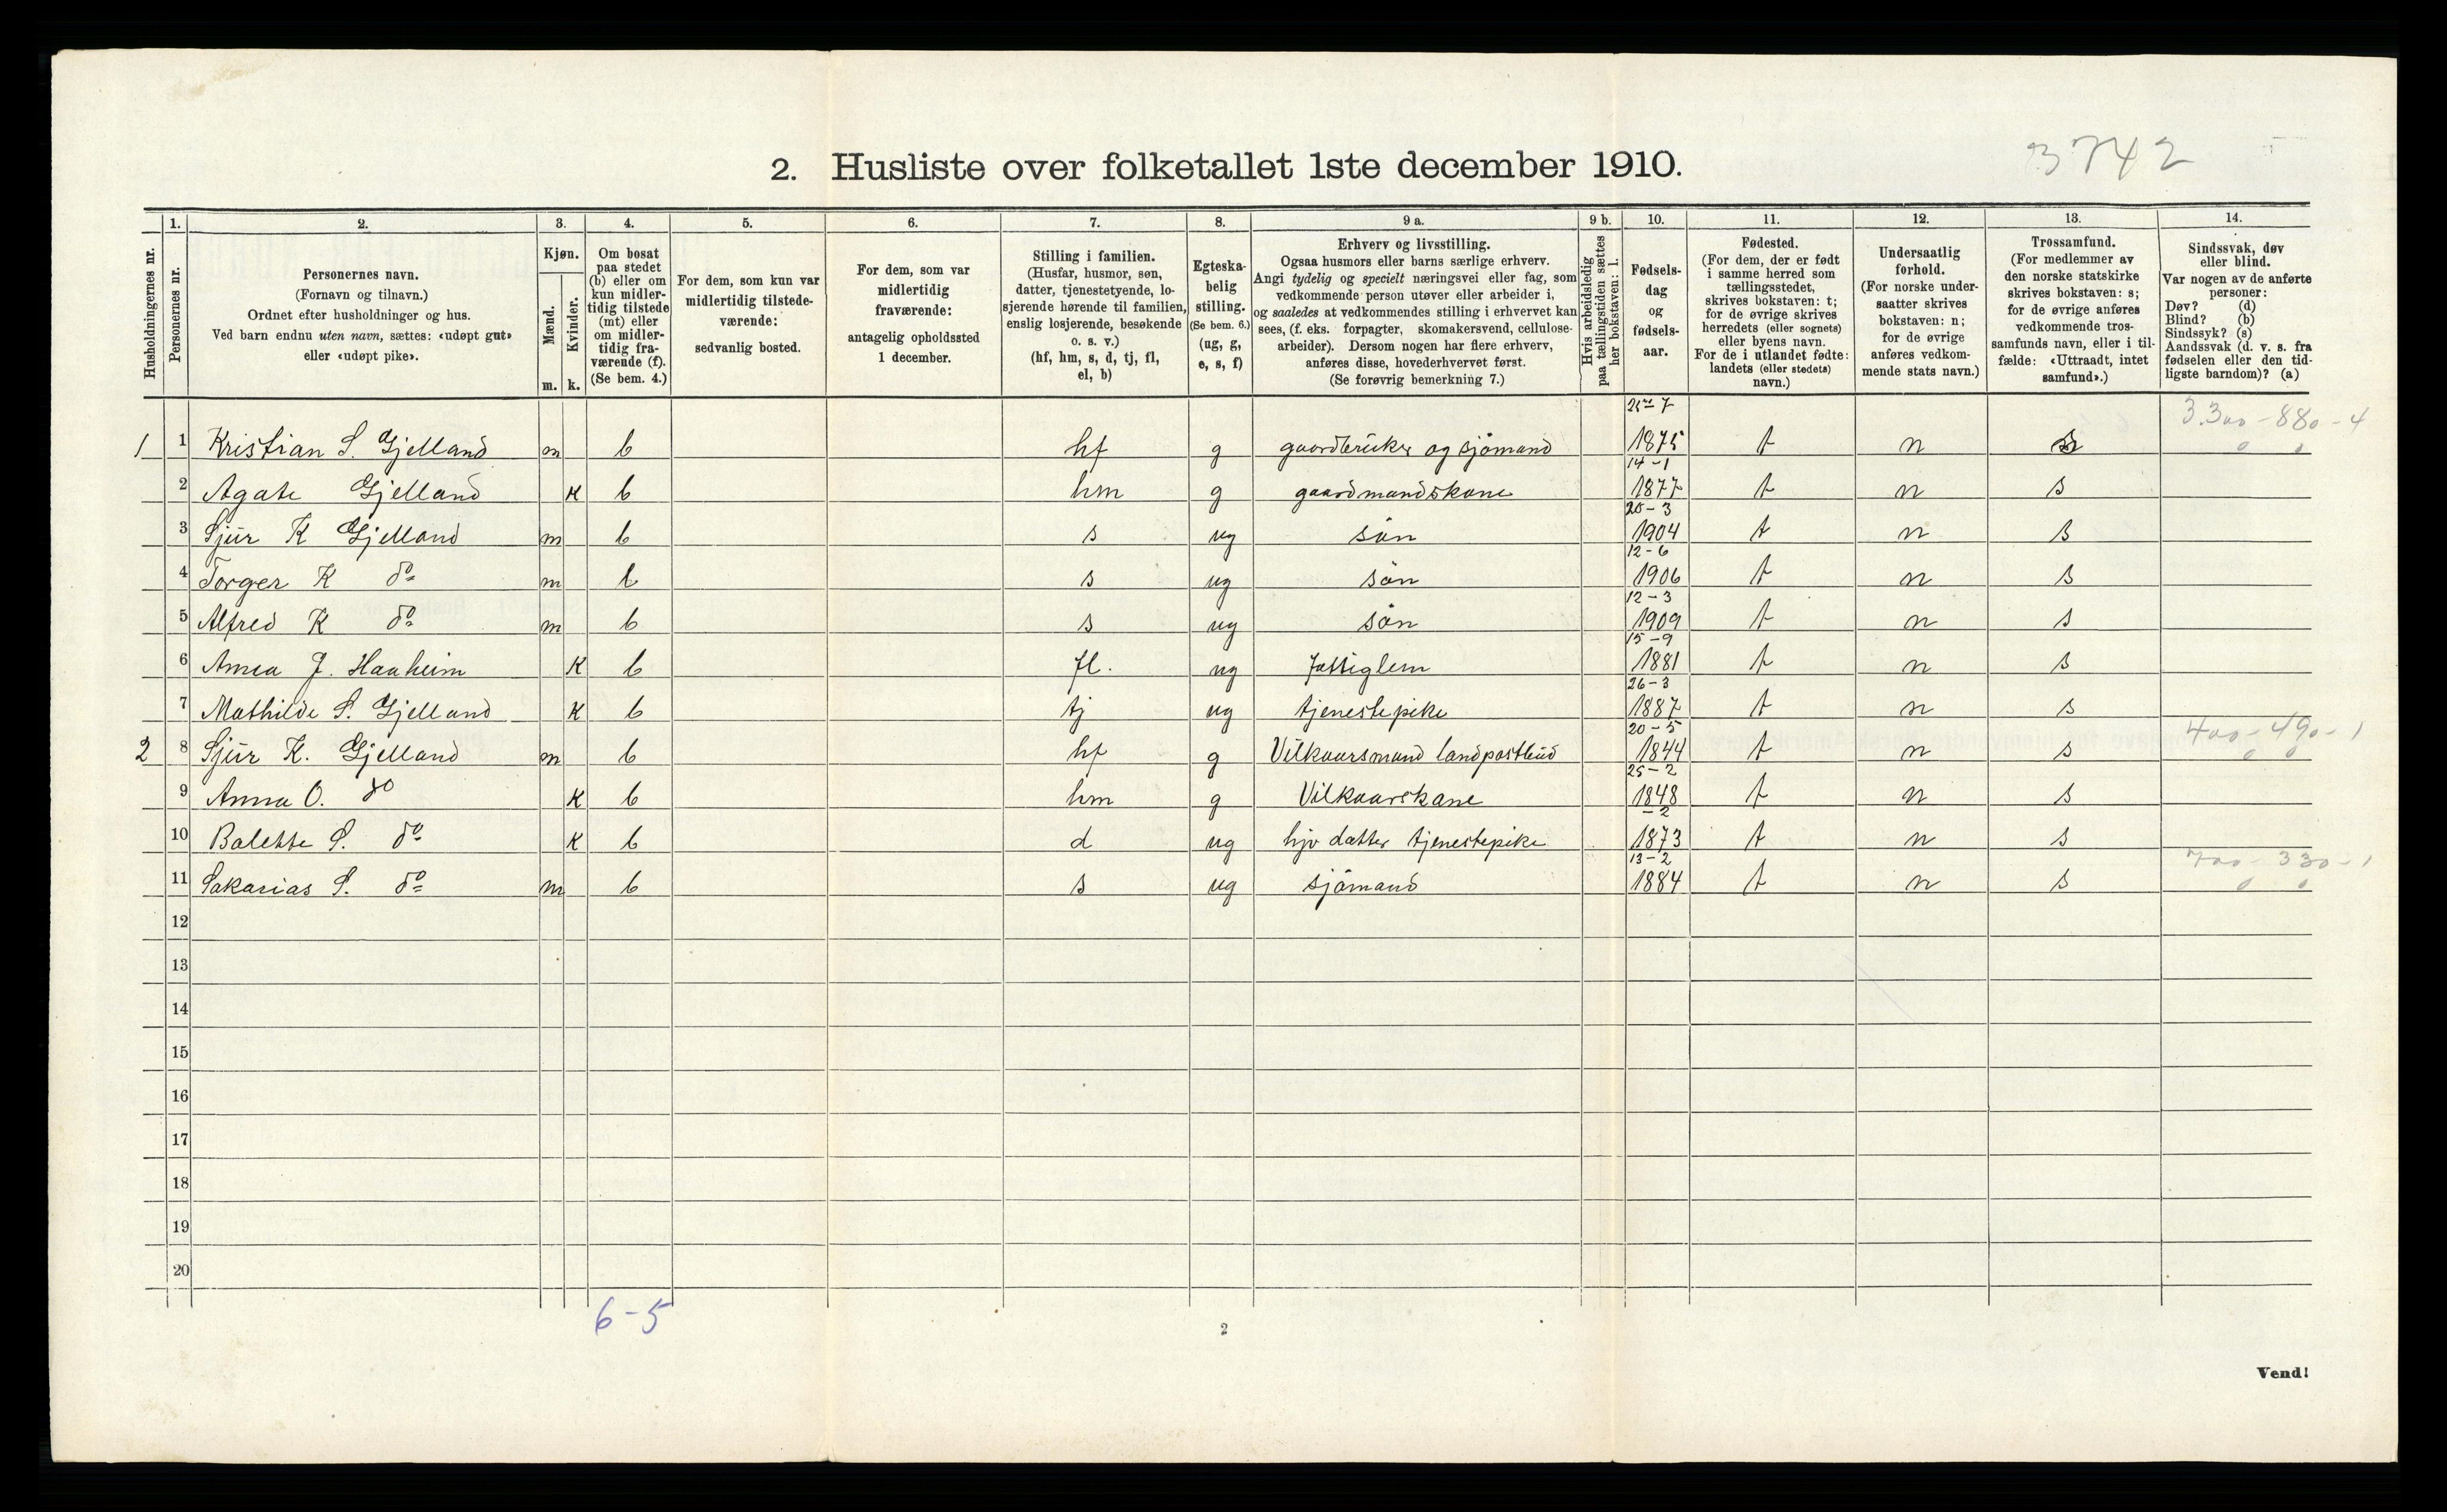 3742
2. Husliste over folketallet 1ste december 1910.
1. 2. 3. 4. 5. 6. 7. 8. 9 a. 9 b. 10. 11. 12. 13. 14.
Husholdningernes nr.
Personernes nr.
Personernes navn.
(Fornavn og tilnavn.)
Ordnet efter husholdninger og hus.
Ved barn endnu uten navn, sættes: «udøpt gut»
eller «udøpt pike».
Kjøn.
Mænd.
Kvinder.
m. k.
Om bosat
paa stedet
(b) eller om
kun midler-
tidig tilstede
(mt) eller
om midler-
tidig fra-
værende (f).
(Se bem. 4.)
For dem, som kun var
midlertidig tilstede-
værende:
sedvanlig bosted.
For dem, som var
midlertidig
fraværende:
antagelig opholdssted
1 december.
Stilling i familien.
(Husfar, husmor, søn,
datter, tjenestetyende, lo-
sjerende hørende til familien,
enslig losjerende, besøkende
o. s. v.)
(hf, hm, s, d, tj, fl,
el, b)
Egteska-
belig
stilling.
(Se bem. 6.)
(ug, g,
e, s, f)
Erhverv og livsstilling.
Ogsaa husmors eller barns særlige erhverv.
Angi tydelig og specielt næringsvei eller fag, som
vedkommende person utøver eller arbeider i,
og saaledes at vedkommendes stilling i erhvervet kan
sees, (f. eks. forpagter, skomakersvend, cellulose-
arbeider). Dersom nogen har flere erhverv,
anføres disse, hovederhvervet først.
(Se forøvrig bemerkning 7.)
Hvis arbeidsledig
paa tællingstiden sættes
her bokstaven: l.
Fødsels-
dag
og
fødsels-
aar.
Fødested.
(For dem, der er født
i samme herred som
tællingsstedet,
skrives bokstaven: t;
for de øvrige skrives
herredets (eller sognets)
eller byens navn.
For de i utlandet fødte:
landets (eller stedets)
navn.)
Undersaatlig
forhold.
(For norske under-
saatter skrives
bokstaven: n;
for de øvrige
anføres vedkom-
mende stats navn.)
Trossamfund.
(For medlemmer av
den norske statskirke
skrives bokstaven: s;
for de øvrige anføres
vedkommende tros-
samfunds navn, eller i til-
fælde: «Uttraadt, intet
samfund».)
Sindssvak, døv
eller blind.
Var nogen av de anførte
personer:
Døv? (d)
Blind? (b)
Sindssyk? (s)
Aandssvak (d. v. s. fra
fødselen eller den tid-
ligste barndom)? (a)
25-7 3.300-880-4
1 1 Kristian S. Gjelland m b hf g gaardbruker og sjømand 1875 t n s 0 0
14-1
2 Agate Gjelland K b hm g gaardmandskone 1877 t n s
20-3
3 Sjur K Gjelland m b s ug søn 1904 t n s
12-6
4 Torger K do m b s ug søn 1906 t n s
12-3
5 Alfred K do m b s ug søn 1909 t n s
15-9
6 Anna J. Haaheim K b fl. ug fattiglem 1881 t n s
26-3
7 Mathilde S. Gjelland K b tj ug tjenestepike 1887 t n s
20-5 400-490-1
2 8 Sjur K. Gjelland m b hf g Vilkaarsmand landpostbud 1844 t n s 0 0
25-2
9 Anna O. do K b hm g Vilkaarskone 1848 t n s
-2
10 Balette S. do K b d ug hjv datter tjenestepike 1873 t n s
13-2 700-330-1
11 Sakarias S. do m b s ug sjømand 1884 t n s 0 0
12
13
14
15
16
17
18
19
20
6-5
2
Vend!